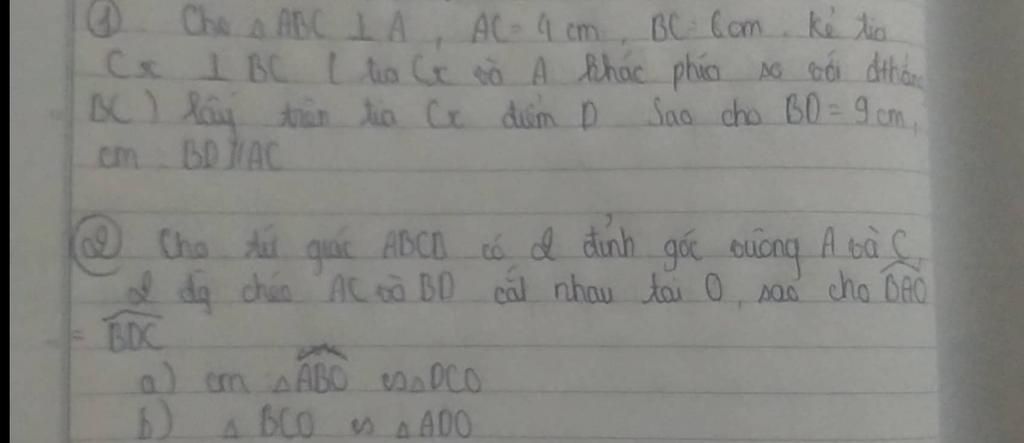 ① Cho △ABC ⊥ A, AC = 4 cm, BC = 6cm. Kẻ tia
Cx ⊥ BC ( tia Cx và A khác phía so với đthẳn
BC) lấy trên tia Cx điểm D Sao cho BD = 9 cm,
cm BD // AC
② Cho tứ giác ABCD có 2 đỉnh góc vuông A và C,
2 đg chéo AC và BD cắt nhau tại O, sao cho BAO
= BDC
a) cm △ABO ∽ △DCO
b) △ BCO ∽ △ ADO